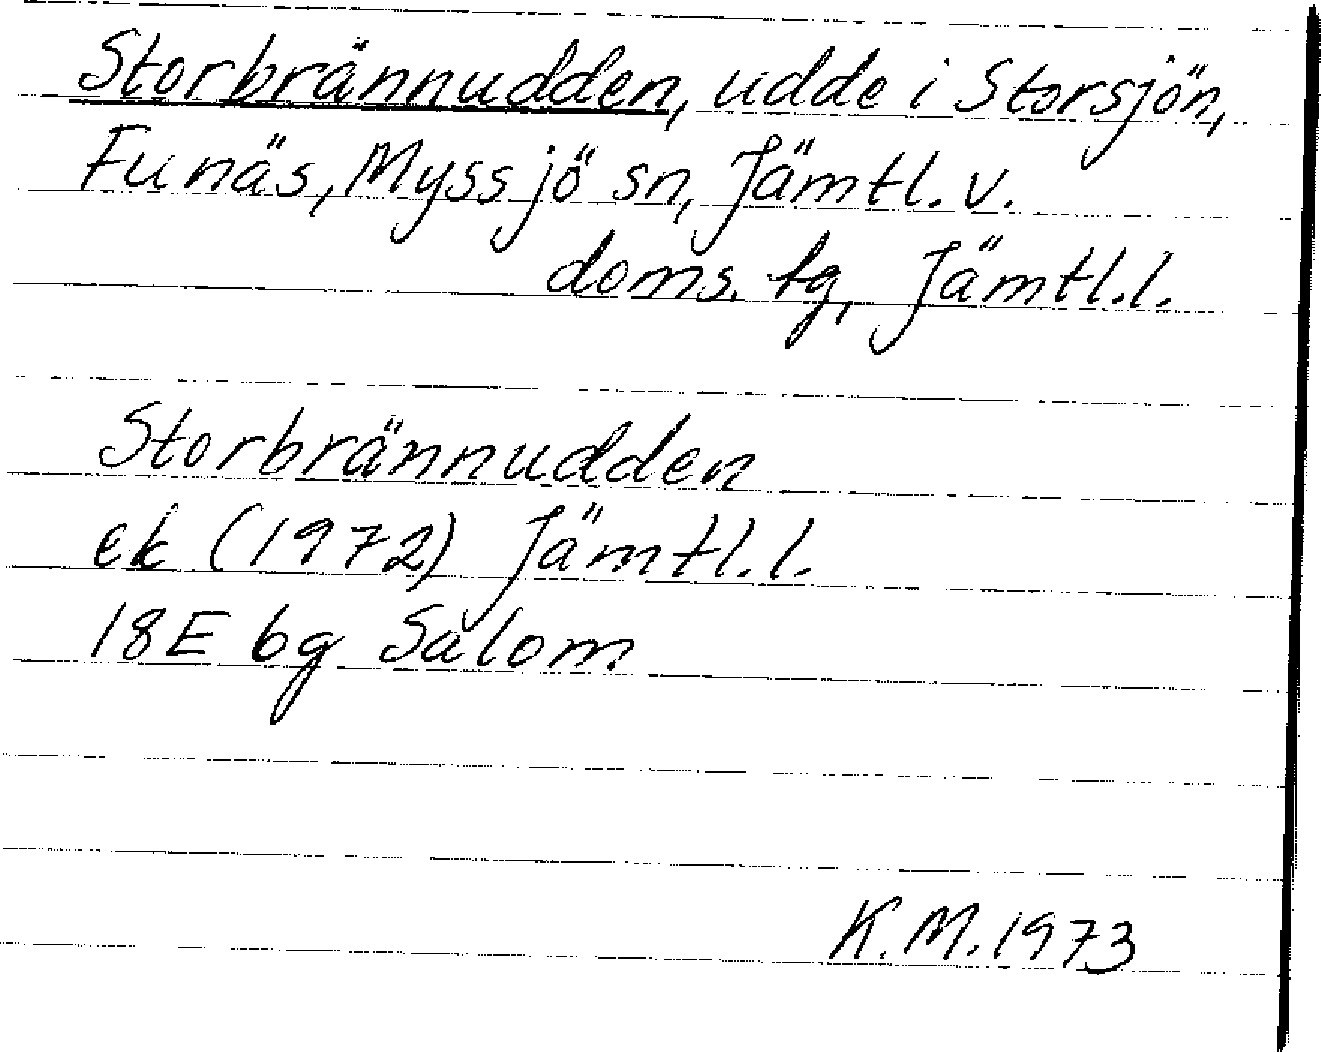 Storbrännudden, udde i Storsjön,
Funäs, Myssjö sn, Jämtl. v.
doms. tg, Jämtl. l.
Storbrännudden
ek (1972) Jämtl. l.
18E bg Salom
K. M. 1973